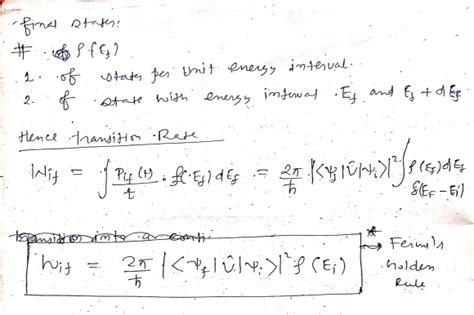 final states:
# ρ(E_f)
1. of states per unit energy interval.
2. of state with energy interval E_f and E_f + dE_f
Hence transition Rate
W_if = ∫ P_if(t)/t · ρ(E_f) dE_f = 2π/ħ |<Ψ_f|Û|Ψ_i>|² ∫ ρ(E_f) dE_f
δ(E_F - E_i)
W_if = 2π/ħ |<Ψ_f|Û|Ψ_i>|² ρ(E_i)
* → Fermi's
Golden
Rule